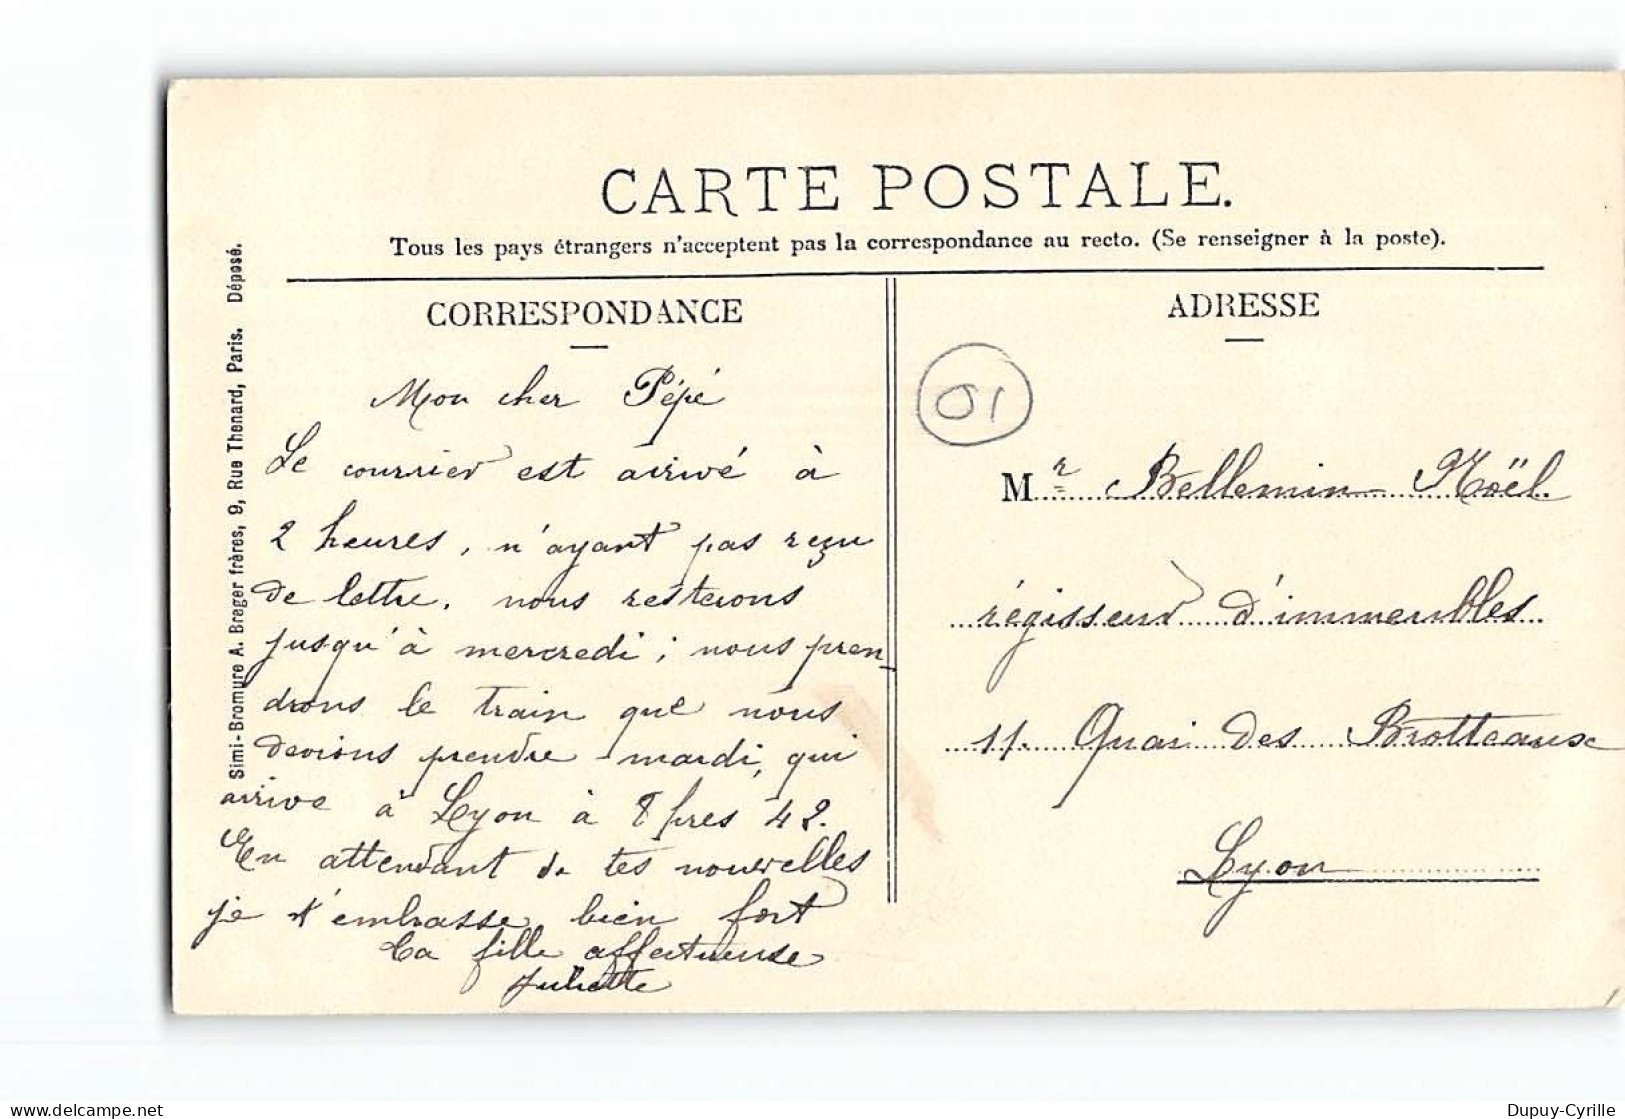 CARTE POSTALE.
Tous les pays étrangers n'acceptent pas la correspondance au recto. (Se renseigner à la poste).
Simi-Bromure A. Breger frères, 9, Rue Thenard, Paris. Déposé.
CORRESPONDANCE
Mon cher Pépé
Le courrier est arrivé à
2 heures, n'ayant pas reçu
de lettre, nous resterons
jusqu'à mercredi ; nous pren
drons le train que nous
devions prendre mardi, qui
arrive à Lyon à 8 hres 42.
En attendant de tes nouvelles
je t'embrasse bien fort
Ta fille affectueuse
Juliette
ADRESSE
01
Mr Bellemin Noël
régisseur d'immeubles
11. Quai des Brotteaux
Lyon
delcampe.net
Dupuy-Cyrille